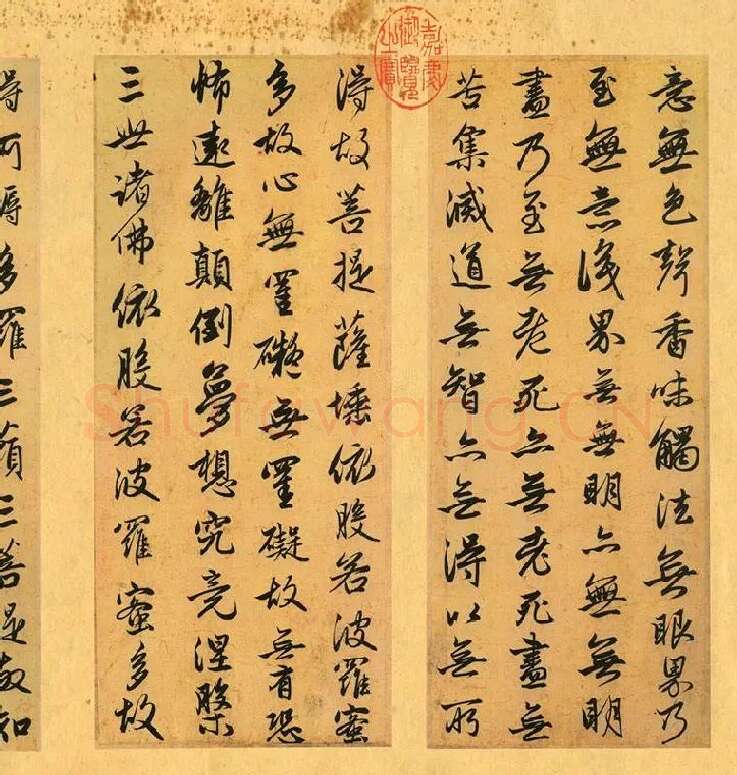 意無色聲香味觸法無眼界乃
至無意識界無無明亦無無明
盡乃至無老死亦無老死盡無
苦集滅道無智亦無得以無所
得故菩提薩埵依般若波羅蜜
多故心無罣礙無罣礙故無有恐
怖遠離顛倒夢想究竟涅槃
三世諸佛依般若波羅蜜多故
得阿耨多羅三藐三菩提故知
嘉慶御覽之寶
Shufawang.CN